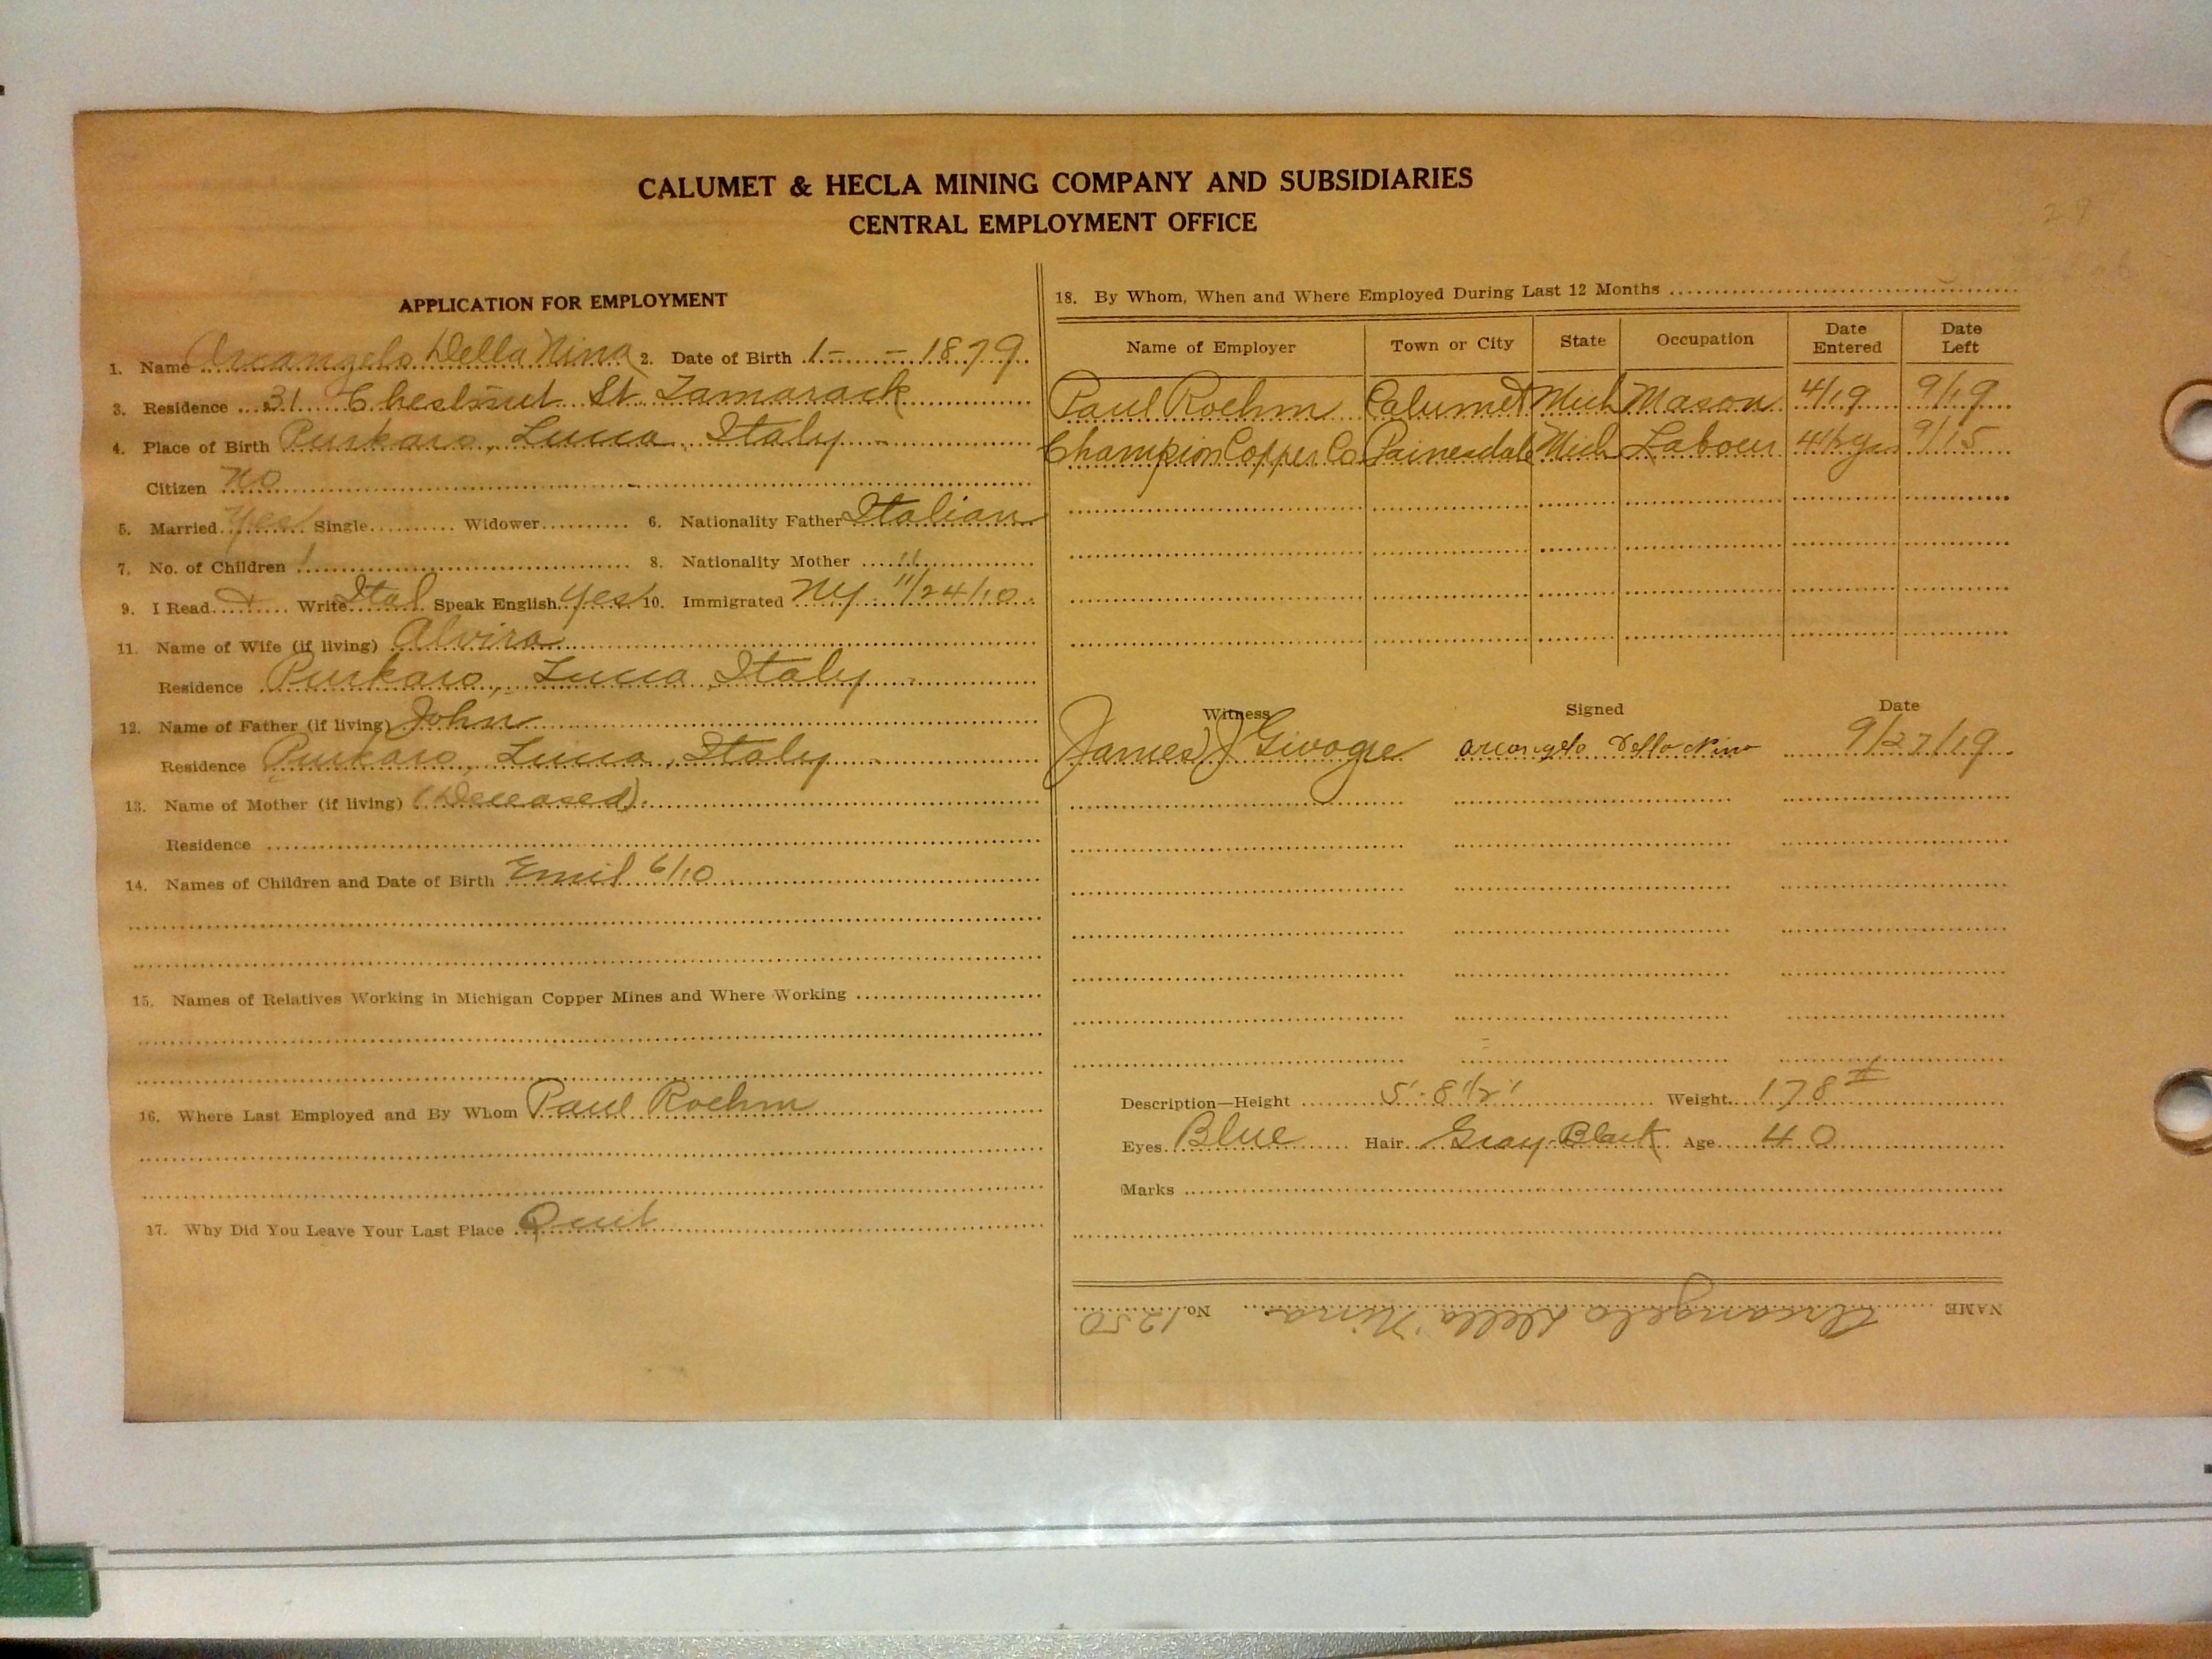 CALUMET & HECLA MINING COMPANY AND SUBSIDIARIES
CENTRAL EMPLOYMENT OFFICE
APPLICATION FOR EMPLOYMENT
1. Name Arcangelo Della Nina 2. Date of Birth 1 - - 1879
3. Residence 31 Chestnut St Tamarack
4. Place of Birth Purkaro, Lucca, Italy
Citizen No
5. Married yes Single Widower 6. Nationality Father Italian
7. No. of Children 1 8. Nationality Mother "
9. I Read & Write Ital Speak English yes 10. Immigrated NY 11/24/10
11. Name of Wife (if living) Alvira
Residence Purkaro, Lucca, Italy
12. Name of Father (if living) John
Residence Purkaro, Lucca, Italy
13. Name of Mother (if living) (Deceased)
Residence
14. Names of Children and Date of Birth Emil 6/10
15. Names of Relatives Working in Michigan Copper Mines and Where Working
16. Where Last Employed and By Whom Paul Roehm
17. Why Did You Leave Your Last Place Quit
18. By Whom, When and Where Employed During Last 12 Months
Name of Employer Town or City State Occupation Date Entered Date Left
Paul Roehm Calumet Mich Mason 4/19 9/19
Champion Copper Co Painesdale Mich Labour 4 1/2 yrs 9/15
Witness Signed Date
James J Givogre arcangelo Della Nina 9/27/19
Description—Height 5'-8 1/2" Weight 178 #
Eyes Blue Hair Gray-Black Age 40
Marks
NAME Arcangelo Della Nina No. 1250
29